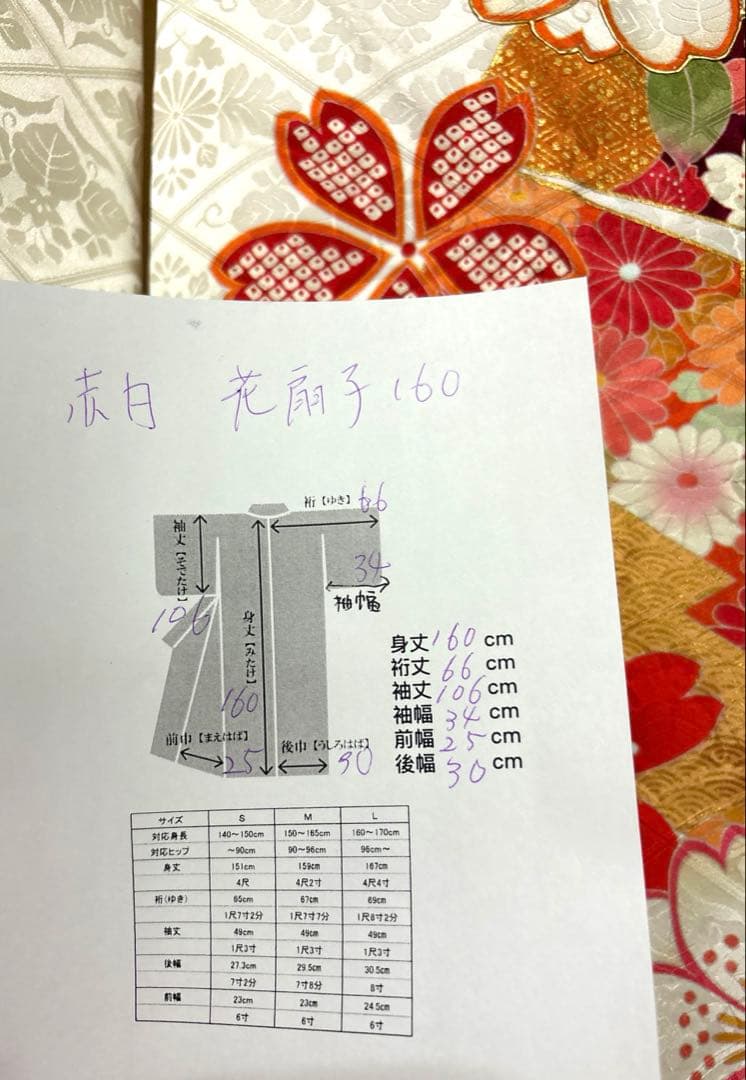 赤白 花扇子160
裄【ゆき】66
袖丈【そでたけ】
34
袖幅
106
身丈【みたけ】
160
前巾【まえはば】
25
後巾【うしろはば】
30
身丈160cm
裄丈66cm
袖丈106cm
袖幅34cm
前幅25cm
後幅30cm
サイズ S M L
対応身長 140〜150cm 150〜165cm 160〜170cm
対応ヒップ 〜90cm 90〜96cm 96cm〜
身丈 151cm 159cm 167cm
4尺 4尺2寸 4尺4寸
裄(ゆき) 65cm 67cm 69cm
1尺7寸2分 1尺7寸7分 1尺8寸2分
袖丈 49cm 49cm 49cm
1尺3寸 1尺3寸 1尺3寸
後幅 27.3cm 29.5cm 30.5cm
7寸2分 7寸8分 8寸
前幅 23cm 23cm 24.5cm
6寸 6寸 6寸